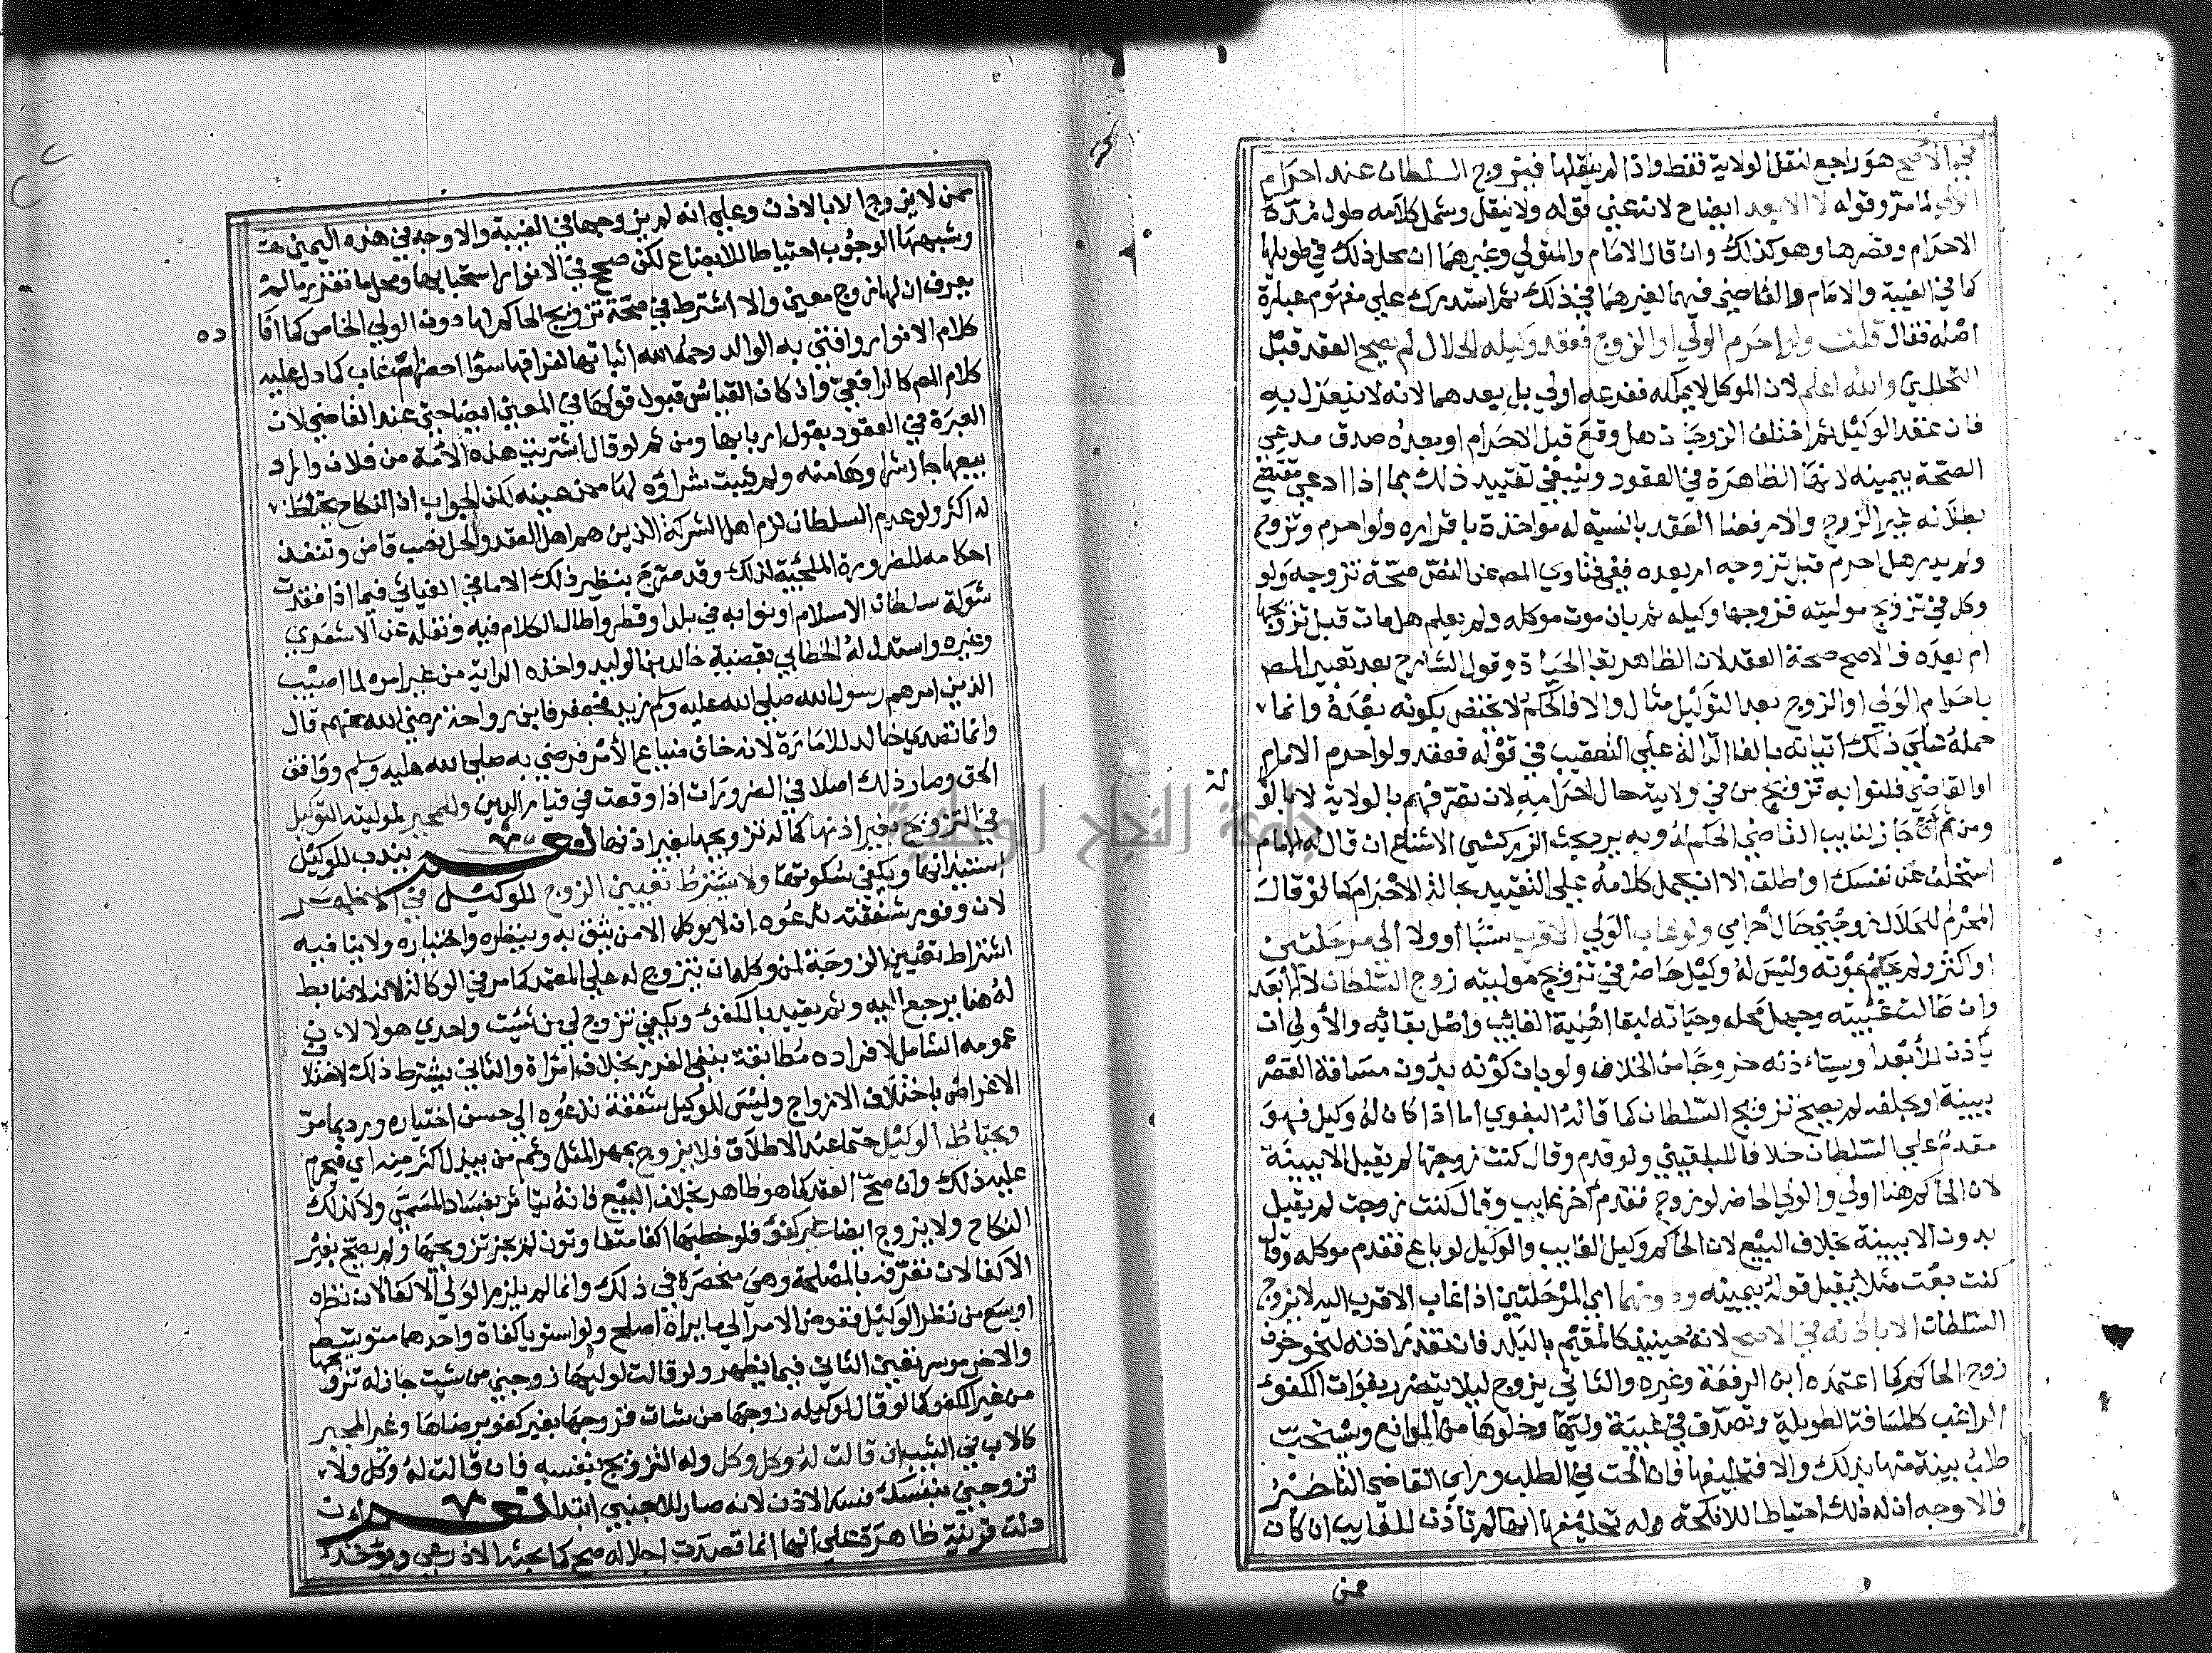 في الأصح هو راجع لنقل الولاية فقط واذا لم ينقلها فيزوج السلطان عند احرام
الولي لما مر وقوله لا الابعد ايضاح لانه عني قوله ولا ينقل وشمل كلامه طول مدة
الاحرام وقصرها وهو كذلك وان قال الامام والمتولي وغيرهما ان محل ذلك في طويلها
كما في الغيبة والامام والقاضي فيهما لغيرهما في ذلك ثم استدرك علي مفهوم عبارة
اصله فقال قلت ولو احرم الولي او الزوج فعقد وكيله الحلال لم يصح العقد قبل
التحللين والله اعلم لان الموكل لا يملكه ففرعه اولي بل بعدهما لانه لا ينعزل به
فان عقد الوكيل ثم اختلف الزوجان هل وقع قبل الاحرام او بعده صدق مدعي
الصحة بيمينه لانها الظاهرة في العقود وينبغي تقييد ذلك بما اذا ادعي مقتضي
بطلانه غير الزوج والا رفعنا العقد بالنسبة له مواخذة باقراره ولو احرم وتزوج
ولم يدر هل احرم قبل تزوجه ام بعده ففي فتاوي المص عن النص صحة تزوجه ولو
وكل في تزويج موليته فزوجها وكيله ثم بان موت موكله ولم يعلم هل مات قبل تزويجها
ام بعده فالاصح صحة العقد لان الظاهر بقا الحياة وقول الشارح بعد تعبير المص
باحرام الولي او الزوج بعد التوكيل مثال والا فالحكم لا يختص بكونه بعده وانما
حمله علي ذلك اتيانه بالفا الدالة علي التعقيب في قوله فعقد ولو احرم الامام
او القاضي فلنوابه تزويج من في ولايته حال احرامه لان تصرفهم بالولاية لا بالوكالة
ومن ثم جاز لنايب القاضي الحكم له وبه يرد بحث الزركشي الامتناع ان قال له الامام
استخلف عن نفسك او اطلق الا ان يحمل كلامه علي التقييد بحالة الاحرام كما لو قال
المحرم للحلال زوجني حال احرامي ولو غاب الولي الاقرب نسبا او ولا الي مرحلتين
او اكثر ولم يحكم بموته وليس له وكيل حاضر في تزويج موليته زوج السلطان لا الابعد
وان طالت غيبته وجهل محله وحياته لبقا اهلية الغائب واصل بقائه والأولي ان
يأذن للأبعد او يستاذنه خروجا من الخلاف ولو بان كونه بدون مسافة القصر
ببينة او بحلفه لم يصح تزويج السلطان كما قاله البغوي اما اذا كان له وكيل فهو
مقدم علي السلطان خلافا للبلقيني ولو قدم وقال كنت زوجتها لم يقبل الا ببينة
لان الحاكم هنا اولي والولي الحاضر لو زوج فقدم آخر غايب وقال كنت زوجت لم يقبل
بدون الا ببينة بخلاف البيع لان الحاكم وكيل الغايب والوكيل لو باع فقدم موكله وقال
كنت بعت مثلا يقبل قوله بيمينه ودونهما اي المرحلتين اذا غاب الاقرب اليه لا يزوج
السلطان الا باذنه في الاصح لانه حينيذ كالمقيم بالبلد فان تعذر اذنه لنحو خوف
زوج الحاكم كما اعتمده ابن الرفعة وغيره والثاني يزوج ليلا يتضرر بفوات الكفوء
الراغب كالمسافة الطويلة وتصدق في غيبة وليها وخلوها من الموانع ويستحب
طلب بينة منها بذلك والا فتحليفها فان الحت في الطلب وراي القاضي التاخير
فالاوجه ان له ذلك احتياطا للانكحة وله تحليفها انها لم تأذن للغايب ان كان
ممن
ممن لا يزوج الا بالاذن وعلي انه لم يزوجها في الغيبة والاوجه في هذه اليمين هنا
وشبهها الوجوب احتياطا للابضاع لكن صحح في الانوار استحبابها ومحل ما تقرر ما لم
يعرف ان لها زوج معين والا اشترط في صحة تزويج الحاكم لها دون الولي الخاص كما افا
ده
كلام الانوار وافتي به الوالد رحمه الله اثباتها لفراقها سوا احضر ام غاب كما دل عليه
كلام المص كالرافعي وان كان القياس قبول قولها في المعين ايضا حتي عند القاضي لان
العبرة في العقود بقول اربابها ومن ثم لو قال اشتريت هذه الأمة من فلان واراد
بيعها جاز شراوها منه ولم يثبت شراؤه لها ممن عينه لكن الجواب ان النكاح يحتاط
له اكثر ولو عدم السلطان لزم اهل الشوكة الذين هم اهل العقد والحل نصب قاض وتنفذ
احكامه للضرورة الملجئة لذلك وقد صرح بنظير ذلك الامام في الغياثي فيما اذا فقدت
شوكة سلطان الاسلام او نوابه في بلد او قطر واطال الكلام فيه ونقله عن الاشعري
وغيره واستدل له الخطابي بقضية خالد بن الوليد واخذه الراية من غير امره لما اصيب
الذين امرهم رسول الله صلي الله عليه وسلم زيد فجعفر فابن رواحة رضي الله عنهم قال
وانما تصدي خالد للامارة لانه خاف ضياع الأمر فرضي به صلي الله عليه وسلم ووافق
الحق وصار ذلك اصلا في الضرورات اذا وقعت في قيام الدين وللمجبر لموليته التوكيل
في التزويج بغير اذنها كما له تزويجها بغير اذنها نعم يندب للوكيل
استيذانها ويكفي سكوتها ولا يشترط تعيين الزوج للوكيل في الاظهر
لان وفور شفقته تدعوه ان لا يوكل الا من يثق به وبنظره واختباره ولا ينافيه
اشتراط تعيين الزوجة لمن وكله ان يتزوج له علي المعتمد كما مر في الوكالة لانه لا ضابط
له هنا يرجع اليه وثم يتقيد بالكفؤ ويكفي تزوج لي من شئت واحدي هولاء لان
عمومه الشامل لافراده مطابقة ينفي الغرر بخلاف امراة والثاني يشترط ذلك لاختلاف
الاغراض باختلاف الازواج وليس للوكيل شفقة تدعوه الي حسن اختياره ورد بما مر
ويحتاط الوكيل حتما عند الاطلاق فلا يزوج بمهر المثل وثم من يبذل اكثر منه اي فيحرم
عليه ذلك وان صح العقد كما هو ظاهر بخلاف البيع فانه يتاثر بفساد المسمي ولا كذلك
النكاح ولا يزوج ايضا غير كفؤ فلو خطبها اكفا متفاوتون لم يجز تزويجها ولم يصح بغير
الاكفا لان تصرفه بالمصلحة وهي منحصرة في ذلك وانما لم يلزم الولي الاكفا لان نظره
اوسع من نظر الوكيل ففوض الامر الي ما يراه اصلح ولو استويا كفاة واحدهما متوسط
والاخر موسر تعين الثاني فيما يظهر ولو قالت لوليها زوجني من شئت جاز له تزويجها
من غير الكفو كما لو قال لوكيله زوجها من شات فزوجها بغير كفو برضاها وغير المجبر
كالاب في الثيب ان قالت له وكل وكل وله التزويج بنفسه فان قالت له وكل ولا
تزوجني بنفسك فسد الاذن لانه صار للاجنبي ابتدا نعم ان
دلت قرينة ظاهرة علي انها انما قصدت اجلاله صح كما بحثه الاذرعي ويؤخذ